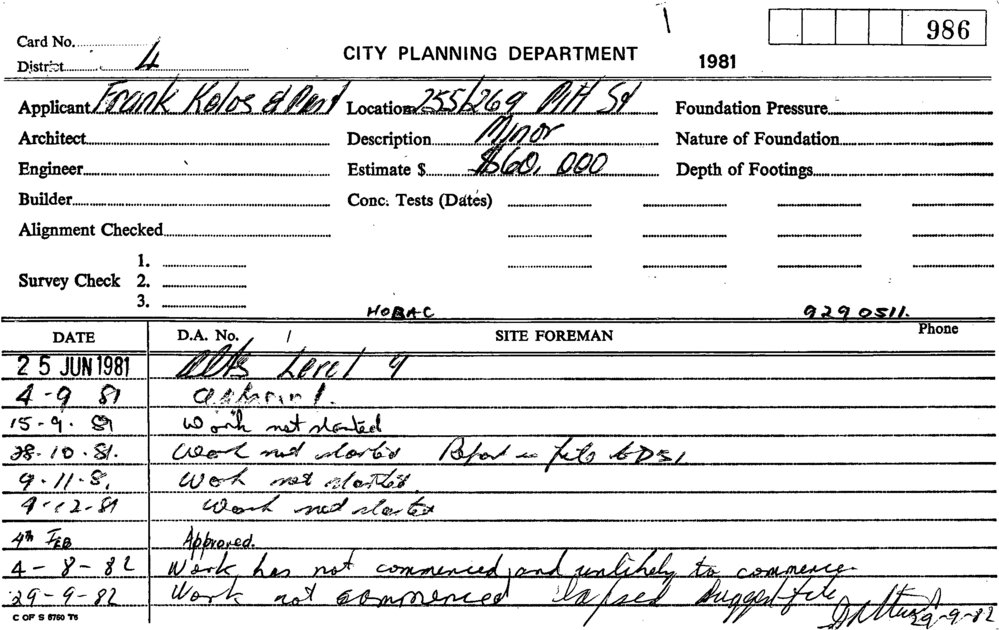 986
Card No.
District 4 CITY PLANNING DEPARTMENT 1981
Applicant Frank Kolos & Location 255/269 Pitt St Foundation Pressure
Architect Description Minor Nature of Foundation
Engineer Estimate $ $60,000 Depth of Footings
Builder Conc. Tests (Dates)
Alignment Checked
1.
Survey Check 2.
3.
HOBAC 9290511.
DATE D.A. No. SITE FOREMAN Phone
25 JUN 1981 Alts Level 9
4-9 81
15-9. 81 Work not started
28.10.81. Work not started Report in file
9.11.8 Work not started
9.12-81 Work not started
4th FEB Approved.
4-8-82 Work has not commenced and unlikely to commence.
29-9-82 Work not commenced lapsed Suggest file
29-9-82
C OF S 5750 T6